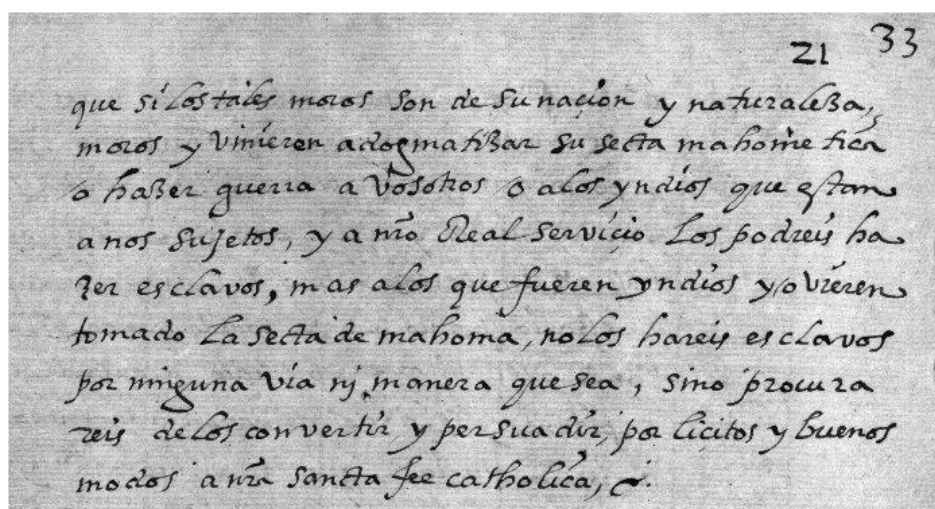 21 33
que si los tales moros son de su nacion y naturaleza,
moros y vinieren a dogmatizar su secta mahometica
o hazer guerra a vosotros o a los yndios que estan
a nos sujetos, y a nro Real servicio los podreis ha
zer esclavos, mas a los que fueren yndios y ovieren
tomado la secta de mahoma, no los hareis esclavos
por ninguna via ni manera que sea, sino procura
reis de los convertir y persuadir, por licitos y buenos
modos a nra sancta fee catholica,